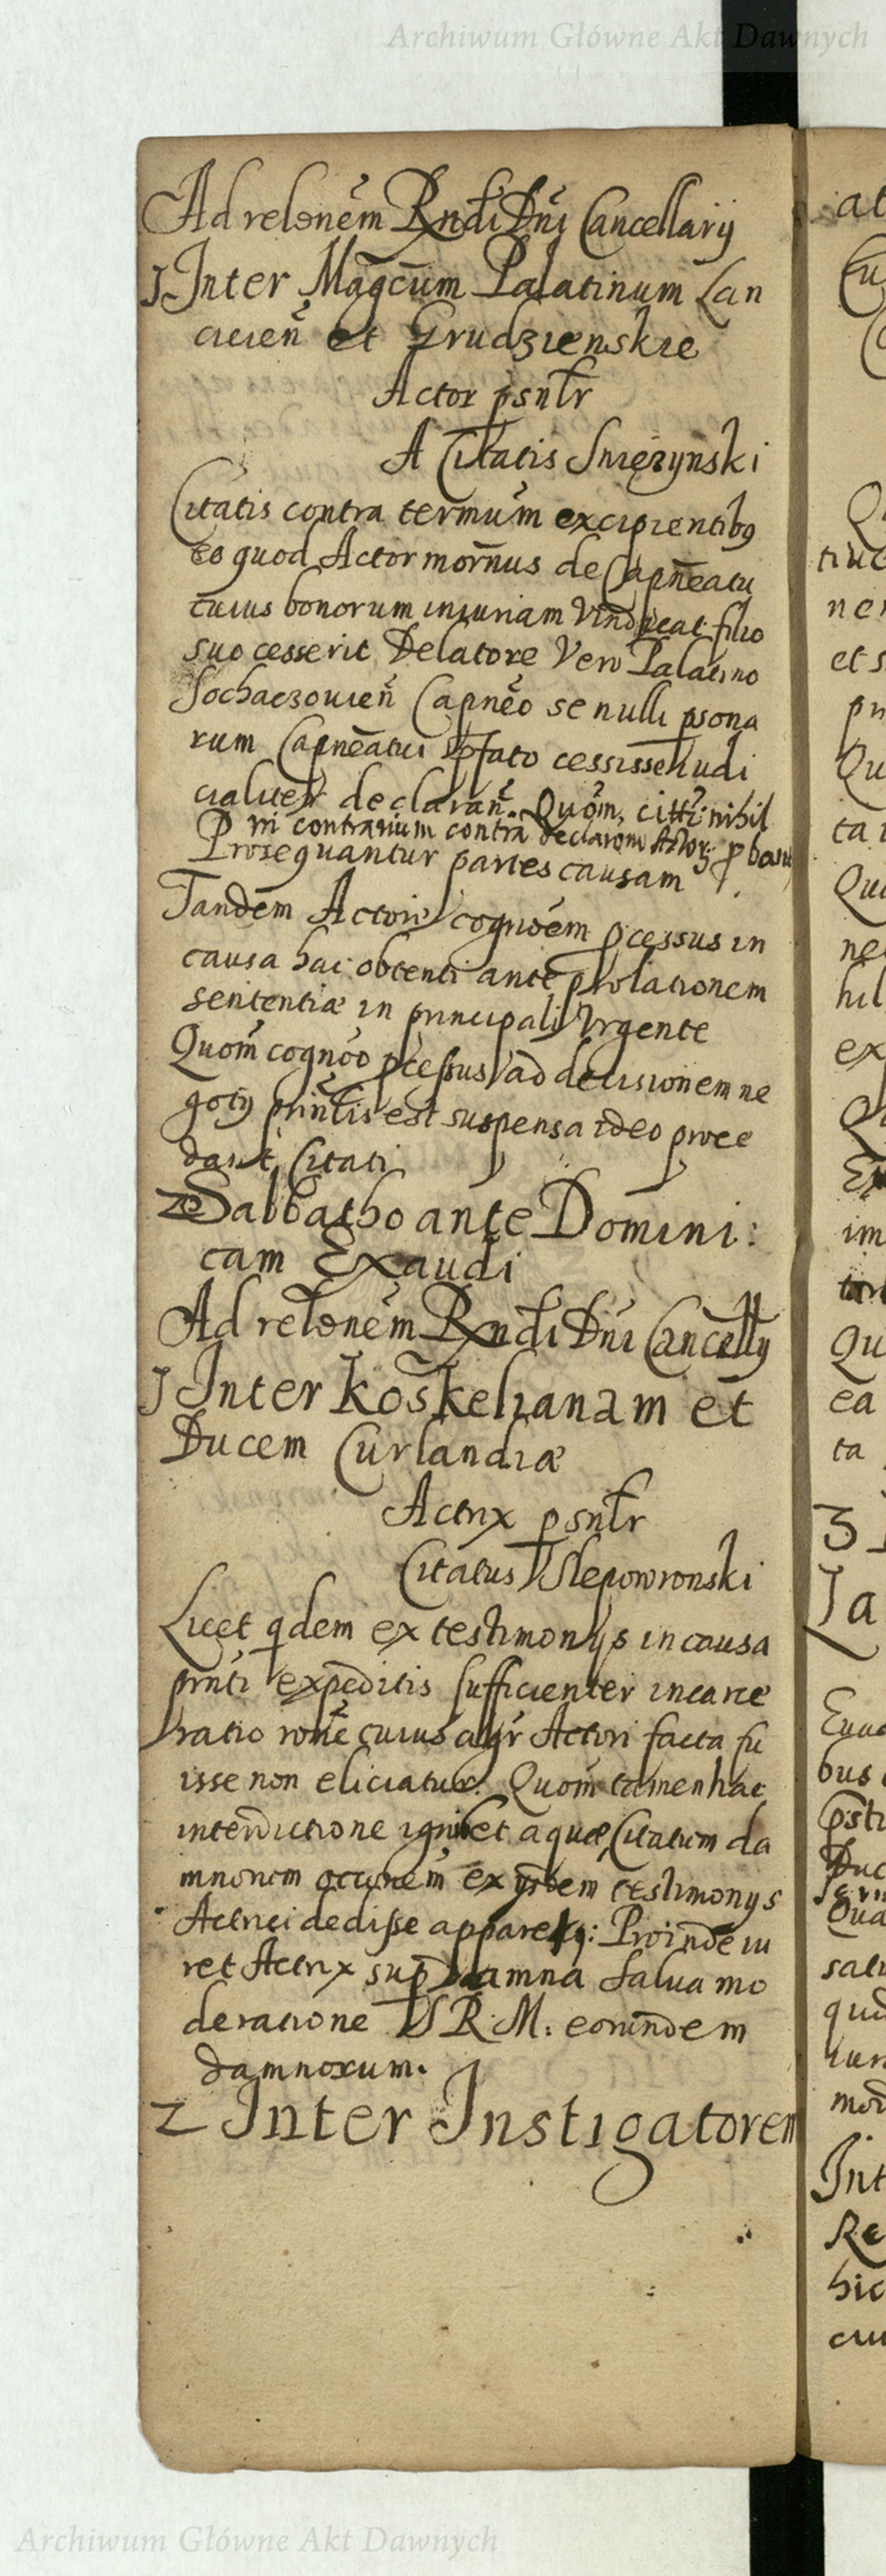 Archiwum Główne Akt Dawnych
Ad relonem Rndi Dni Cancellarij
1 Inter Magcum Palatinum Lan
cicien et Grudzienskie
Actor psnlr
A Citatis Smezynski
Citatis contra termum excipientibq
eo quod Actor mornus de Capneatu
cuius bonorum iniuriam Vindicat filio
suo cesserit Delatore Vero Palatino
Sochaczouien Capneo se nulli psona
rum Capneatui pfato cessisse iudi
cialiter declaran. Quom, citti nihil
in contrarium contra declaronem Actor
Prosequantur partes causam
Tandem Actore cognoem pcessus in
causa hac obtenti ante prolationem
sententiæ in principali Vrgente
Quom cognoo pcessus ad decisionem ne
gotij prinlis est suspensa ideo proce
dant Citati
Sabbatho ante Domini:
cam Exaudi
Ad relonem Rndi Dni Cancellij
1 Inter Koskelianam et
Ducem Curlandiæ
Actrix psnlr
Citatus Slepowronski
Licet qdem ex testimonijs in causa
prnti expeditis sufficienter incarce
ratio rone cuius agir Actori facta fu
isse non eliciatur. Quom tamen hac
interdictione ignis et aquæ Citatum da
mnorum occonem ex ijsdem testimonijs
Actrici dedisse apparet: Proinde iu
ret Actrix sup damna salua mo
deratione S R M: eorundem
damnorum.
2 Inter Instigatorem
Archiwum Główne Akt Dawnych